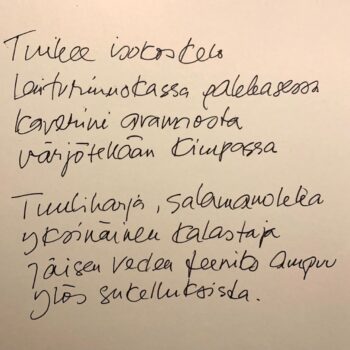 Tuikee isokoskelo
laiturinnokassa pakkasessa
kaverini avannosta
värjötellään kimpassa
Tuuliharja, salamanokka
yksinäinen kalastaja
jäisen veden feeniks ampuu
ylös sukelluksista.